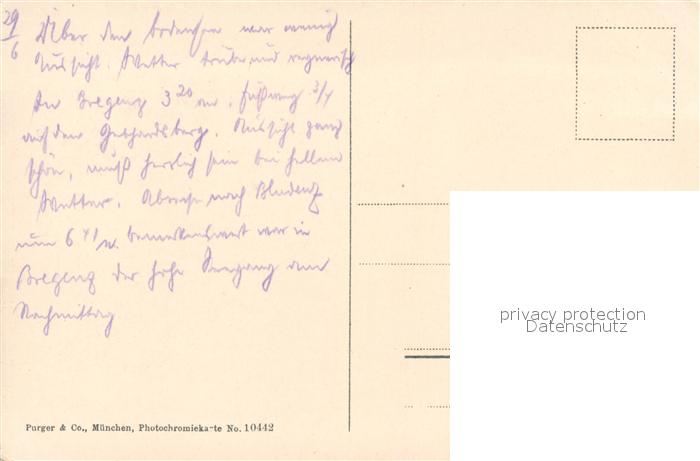 29/6 Über den Bodensee war wenig
Aussicht. Wetter trübe und regnerisch
In Bregenz 3 20 an. Fußweg 3/4
auf den Gebhardsberg. Aussicht ganz
schön, muß herrlich sein bei hellem
Wetter. Abreise nach Bludenz
um 6 41 N. bemerkenswert war in
Bregenz der hohe Seegang am
Nachmittag
privacy protection
Datenschutz
Purger & Co., München, Photochromiekarte No. 10442